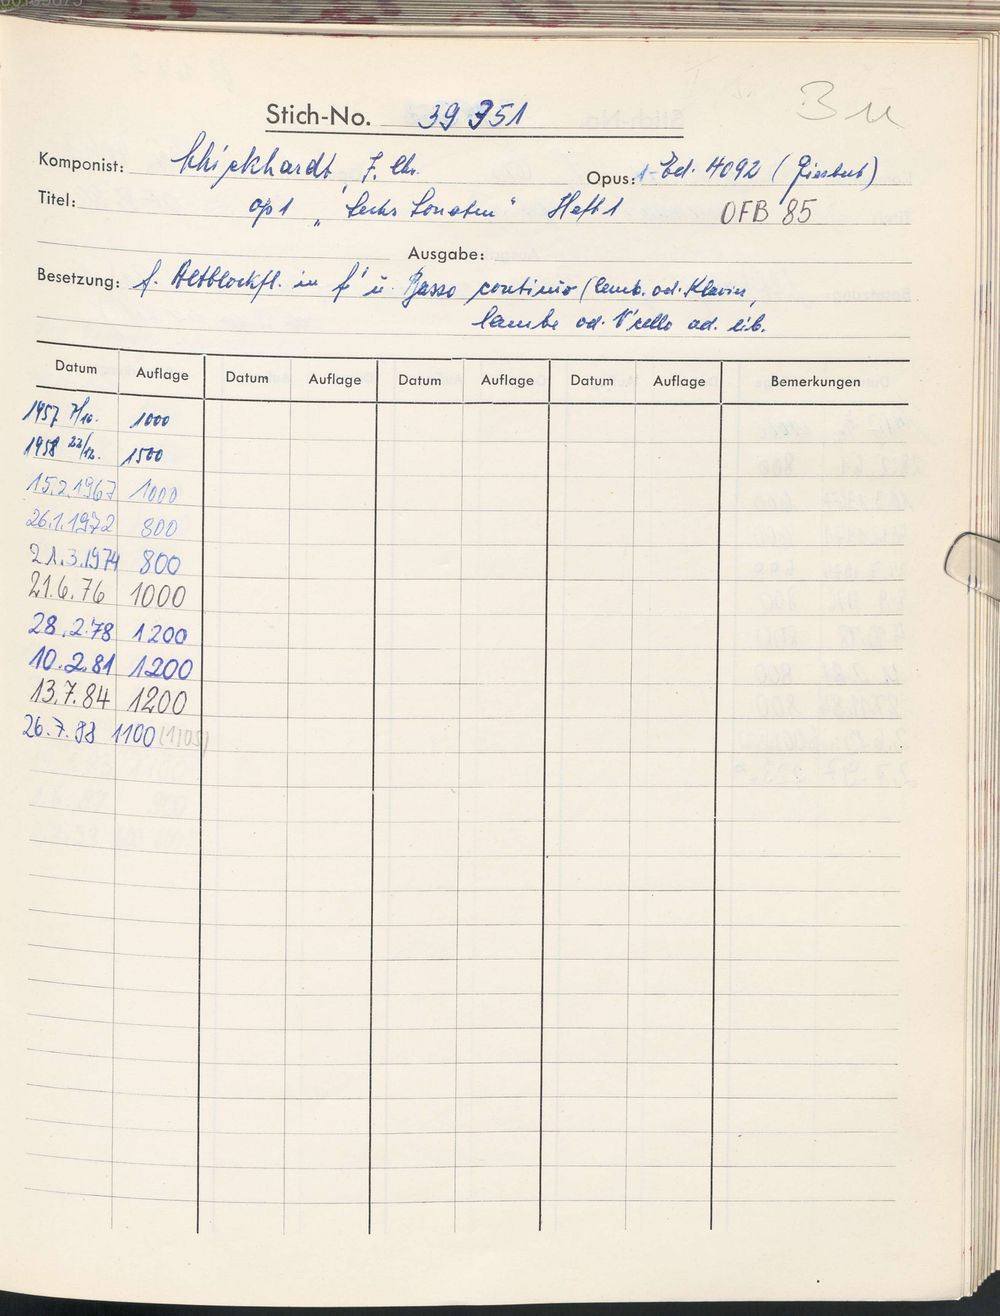 B u
Stich-No. 39351
Komponist: Schickhardt, J. Chr. Opus: 1- Ed. 4092 (Giesbert)
Titel: op 1 „Sechs Sonaten“ Heft 1 OFB 85
Ausgabe:
Besetzung: f. Altblockfl. in f' u. Basso continuo (Cemb. od. Klavier,
Gambe od. V'cello ad. lib.
Datum Auflage Datum Auflage Datum Auflage Datum Auflage Bemerkungen
1957 7/10. 1000
1958 22/12. 1500
15.2.1967 1000
26.1.1972 800
21.3.1974 800
21.6.76 1000
28.2.78 1200
10.2.81 1200
13.7.84 1200
26.7.88 1100 (1105)